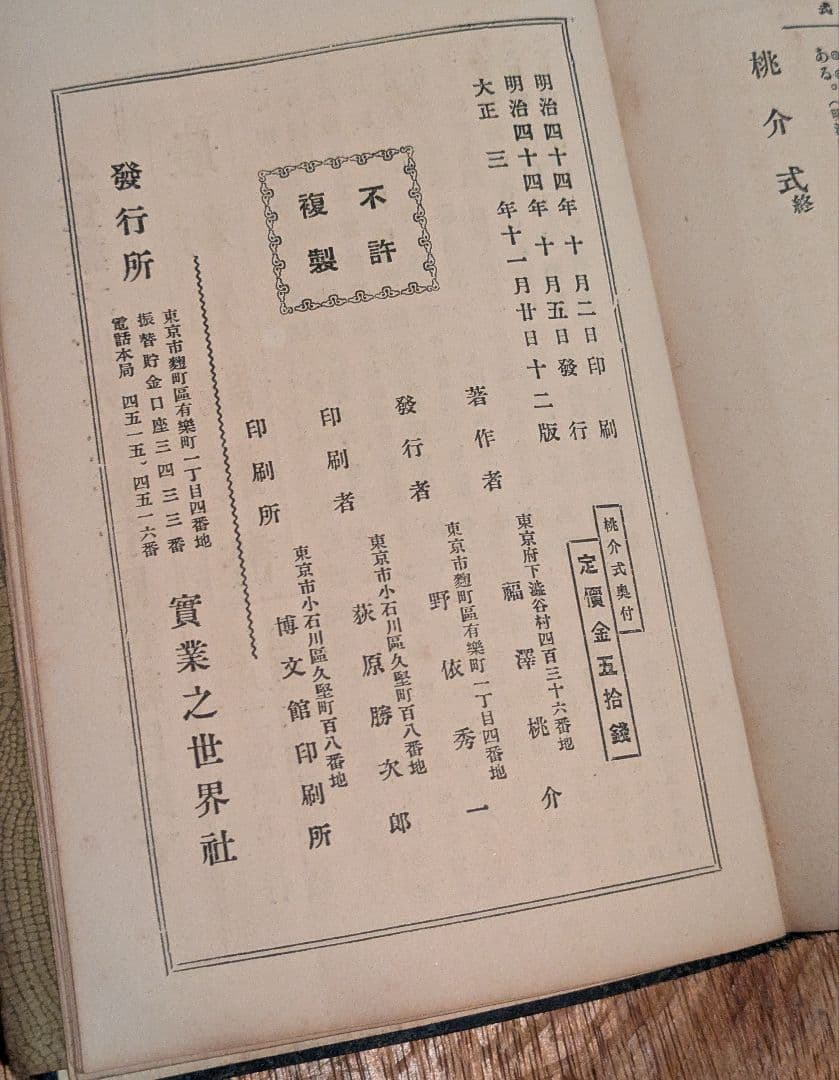 桃介式終
明治四十四年十月二日印刷
明治四十四年十月五日發行
大正三年十一月廿日十二版
不許
複製
桃介式奧付
定價金五拾錢
著作者
東京府下澁谷村四百三十六番地
福澤桃介
發行者
東京市麴町區有樂町一丁目四番地
野依秀一
印刷者
東京市小石川區久堅町百八番地
荻原勝次郎
印刷所
東京市小石川區久堅町百八番地
博文館印刷所
發行所
東京市麴町區有樂町一丁目四番地
振替貯金口座三四三三番
電話本局四五一五、四五一六番
實業之世界社